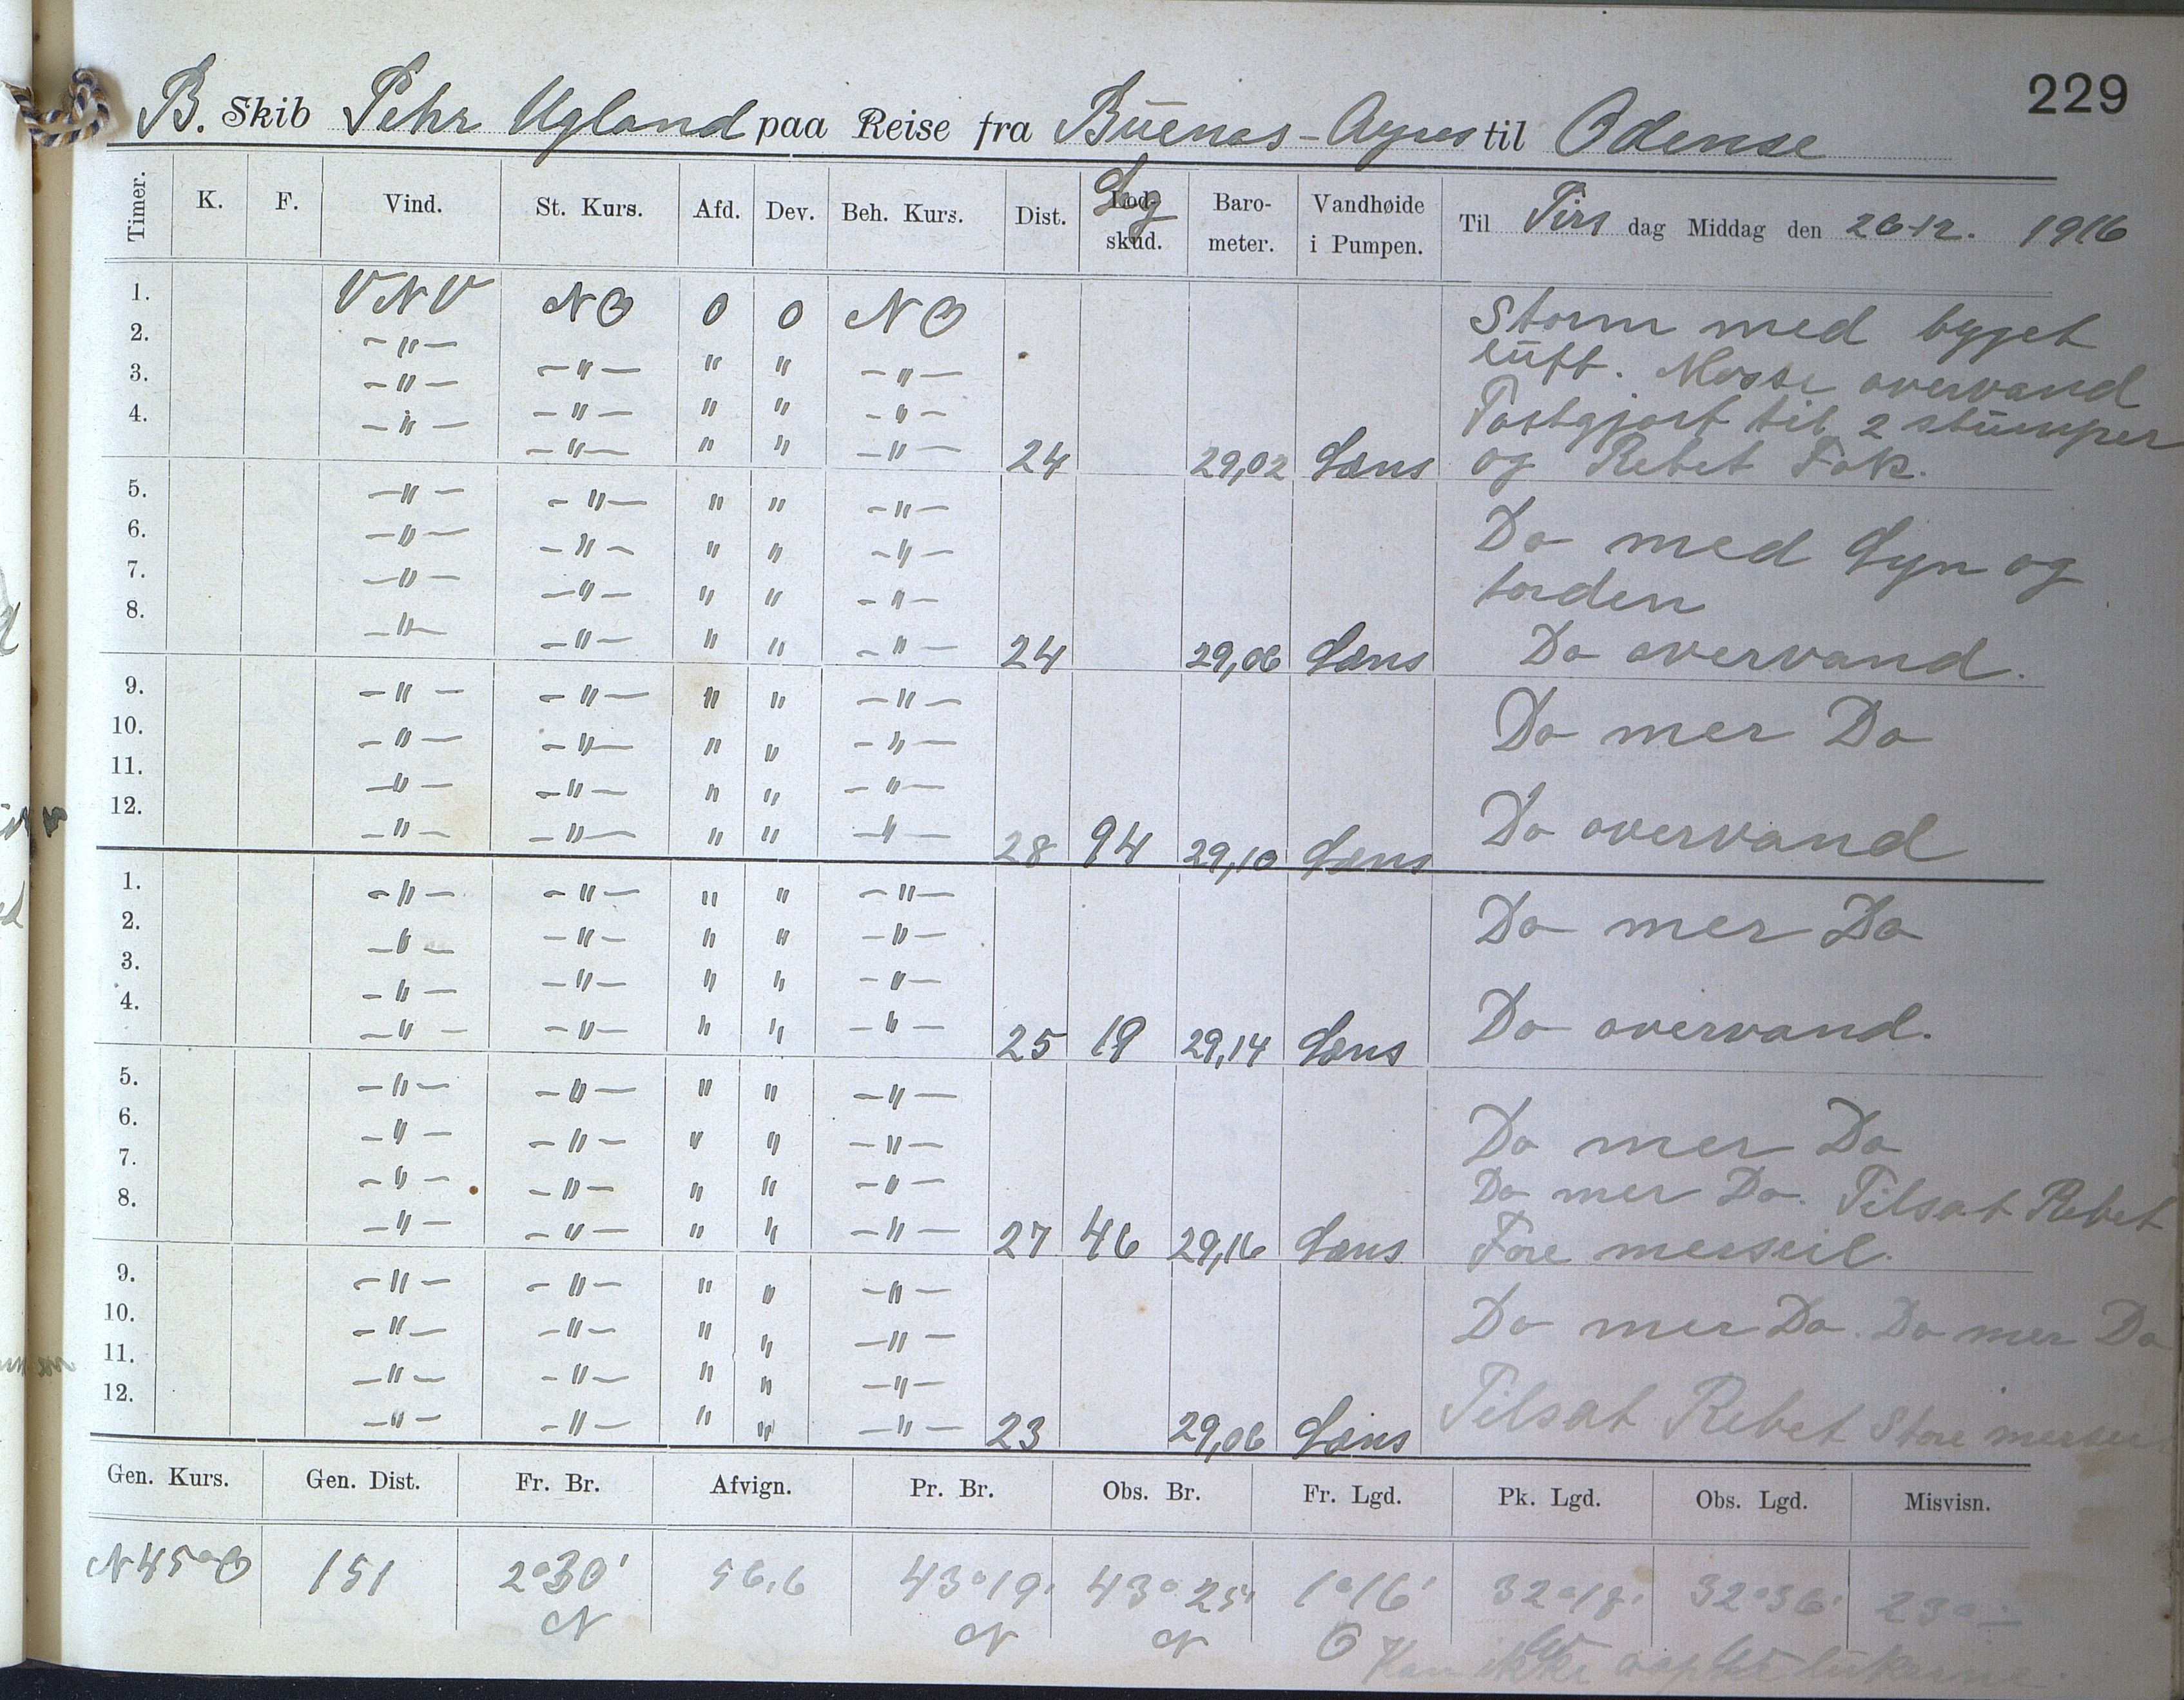 229
B. Skib Pehr Ugland paa Reise fra Buenos-Ayres til Odense
Timer. K. F. Vind. St. Kurs. Afd. Dev. Beh. Kurs. Dist. Log Lodskud. Barometer. Vandhøide i Pumpen. Til Tirs dag Middag den 26-12. 1916
1. VNV NO 0 0 NO Storm med bygget
2. -"- -"- " " -"- luft. Masse overvand
3. -"- -"- " " -"- Fastgjort til 2 stumper
4. -"- -"- " " -"- 24 29,02 Læns og Rebet Fok.
5. -"- -"- " " -"-
6. -"- -"- " " -"- Do med Lyn og
7. -"- -"- " " -"- torden
8. -"- -"- " " -"- 24 29,06 Læns Do overvand.
9. -"- -"- " " -"- Do mer Do
10. -"- -"- " " -"-
11. -"- -"- " " -"-
12. -"- -"- " " -"- 28 94 29,10 Læns Do overvand
1. -"- -"- " " -"- Do mer Do
2. -"- -"- " " -"-
3. -"- -"- " " -"-
4. -"- -"- " " -"- 25 19 29,14 Læns Do overvand.
5. -"- -"- " " -"-
6. -"- -"- " " -"- Do mer Do
7. -"- -"- " " -"- Do mer Do. Tilsat Rebet
8. -"- -"- " " -"- 27 46 29,16 Læns Fore merseil.
9. -"- -"- " " -"-
10. -"- -"- " " -"- Do mer Do. Do mer Do
11. -"- -"- " " -"-
12. -"- -"- " " -"- 23 29,06 Læns Tilsat Rebet Store
Gen. Kurs. Gen. Dist. Fr. Br. Afvign. Pr. Br. Obs. Br. Fr. Lgd. Pk. Lgd. Obs. Lgd. Misvisn.
N45°O 151 2°30' 56.6 43°19' 43°25' 1°16' 32°18' 32°36' 23°-
N N N O
Kan ikke lukerne.